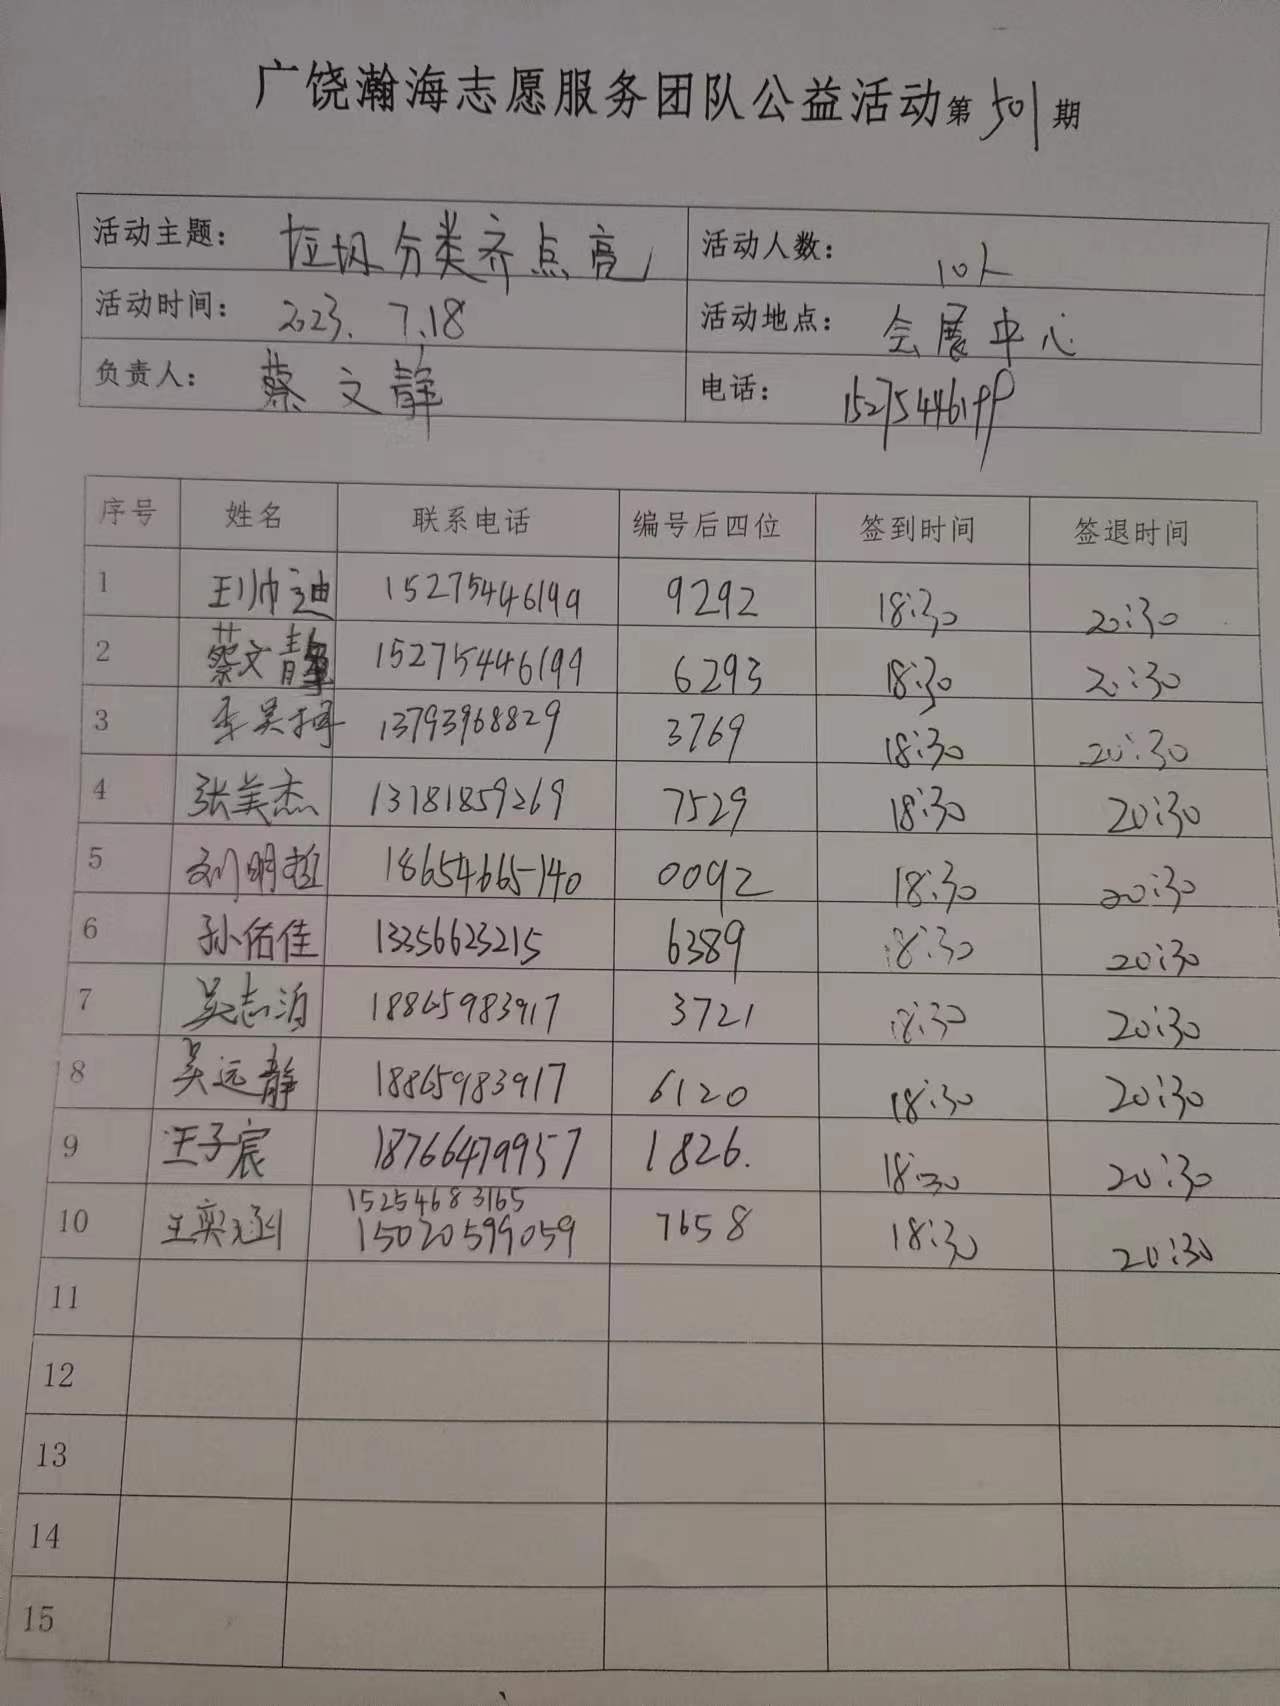 广饶瀚海志愿服务团队公益活动第501期
活动主题： 垃圾分类齐点亮 活动人数： 10人
活动时间： 2023.7.18 活动地点： 会展中心
负责人： 蔡文静 电话： 15275446199
序号 姓名 联系电话 编号后四位 签到时间 签退时间
1 王帅迪 15275446199 9292 18:30 20:30
2 蔡文静 15275446199 6293 18:30 20:30
3 李昊 13793968829 3769 18:30 20:30
4 张美杰 13181859269 7529 18:30 20:30
5 刘明哲 18654665140 0092 18:30 20:30
6 孙佑佳 13356623215 6389 18:30 20:30
7 吴志泊 18865983917 3721 18:30 20:30
8 吴远静 18865983917 6120 18:30 20:30
9 王子宸 18766479957 1826. 18:30 20:30
15254683165
10 王奕涵 15020599059 7658 18:30 20:30
11
12
13
14
15